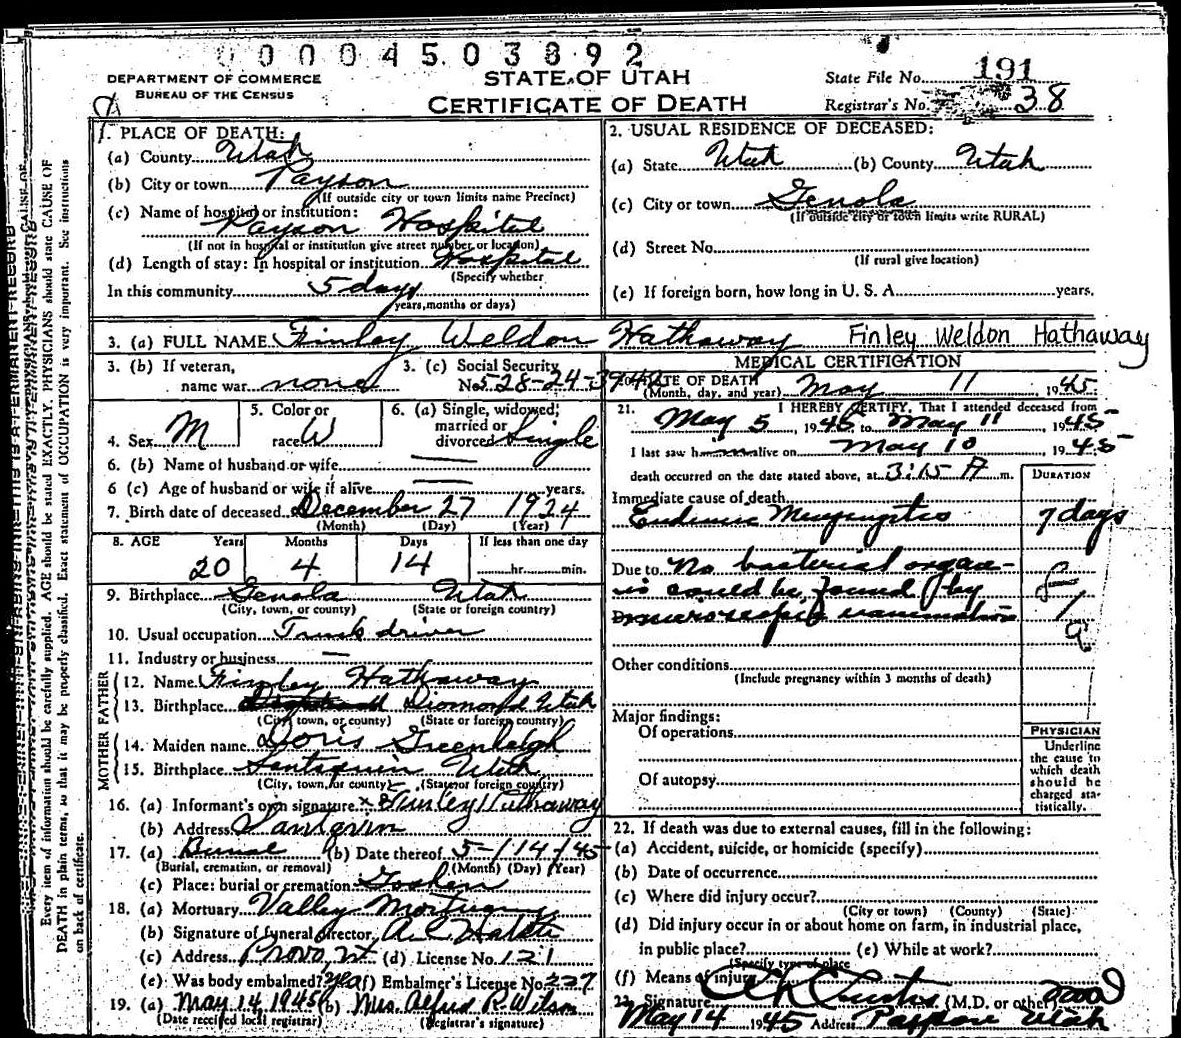 0 0 0 0 4 5 0 3 8 9 2
DEPARTMENT OF COMMERCE
BUREAU OF THE CENSUS
STATE OF UTAH
CERTIFICATE OF DEATH
State File No. 191
Registrar's No. 38
Every item of information should be carefully supplied. AGE should be stated EXACTLY. PHYSICIANS should state CAUSE OF
DEATH in plain terms, so that it may be properly classified. Exact statement of OCCUPATION is very important. See instructions
on back of certificate.
1. PLACE OF DEATH:
(a) County Utah
(b) City or town Payson
(If outside city or town limits name Precinct)
(c) Name of hospital or institution:
Payson Hospital
(If not in hospital or institution give street number or location)
(d) Length of stay: In hospital or institution Hospital
(Specify whether
In this community 5 days
years, months or days)
2. USUAL RESIDENCE OF DECEASED:
(a) State Utah (b) County Utah
(c) City or town Genola
(If outside city or town limits write RURAL)
(d) Street No.
(If rural give location)
(e) If foreign born, how long in U. S. A. years.
3. (a) FULL NAME Finley Weldon Hathaway Finley Weldon Hathaway
3. (b) If veteran,
name war none
3. (c) Social Security
No. 528-24-3948
4. Sex M
5. Color or
race W
6. (a) Single, widowed,
married or
divorced Single
6. (b) Name of husband or wife
6 (c) Age of husband or wife if alive years.
7. Birth date of deceased December 27 1924
(Month) (Day) (Year)
8. AGE Years Months Days If less than one day
20 4 14 hr. min.
9. Birthplace Genola Utah
(City, town, or county) (State or foreign country)
10. Usual occupation Truck driver
11. Industry or business —
FATHER
12. Name Finley Hathaway
13. Birthplace Diamond Utah
(City, town, or county) (State or foreign country)
MOTHER
14. Maiden name Doris Greenleigh
15. Birthplace Santaquin Utah
(City, town, or county) (State or foreign country)
16. (a) Informant's own signature x Finley Hathaway
(b) Address Santquin
17. (a) Burial (b) Date thereof 5-/14-/45
(Burial, cremation, or removal) (Month) (Day) (Year)
(c) Place: burial or cremation Goshen
18. (a) Mortuary Valley Mortuary
(b) Signature of funeral director
(c) Address Provo, Ut. (d) License No. 121
(e) Was body embalmed? yes (f) Embalmer's License No. 227
19. (a) May 14, 1945 (b) Mrs. Alfred R. Wilson
(Date received local registrar) (Registrar's signature)
MEDICAL CERTIFICATION
20. DATE OF DEATH May 11 1945
(Month, day, and year)
21. I HEREBY CERTIFY, That I attended deceased from
May 5, 1945 to May 11 1945
I last saw him alive on May 10 1945
death occurred on the date stated above, at 3:15 A m.
DURATION
Immediate cause of death
7 days
Due to No bacterial organ-
is could be found by
microscopic examination
Other conditions
(Include pregnancy within 3 months of death)
Major findings:
Of operations
Of autopsy
PHYSICIAN
Underline
the cause to
which death
should be
charged sta-
tistically.
22. If death was due to external causes, fill in the following:
(a) Accident, suicide, or homicide (specify)
(b) Date of occurrence
(c) Where did injury occur?
(City or town) (County) (State)
(d) Did injury occur in or about home on farm, in industrial place,
in public place? (e) While at work?
(Specify type of place
(f) Means of injury
23. Signature (M.D. or other)
May 14 1945 Address Payson Utah